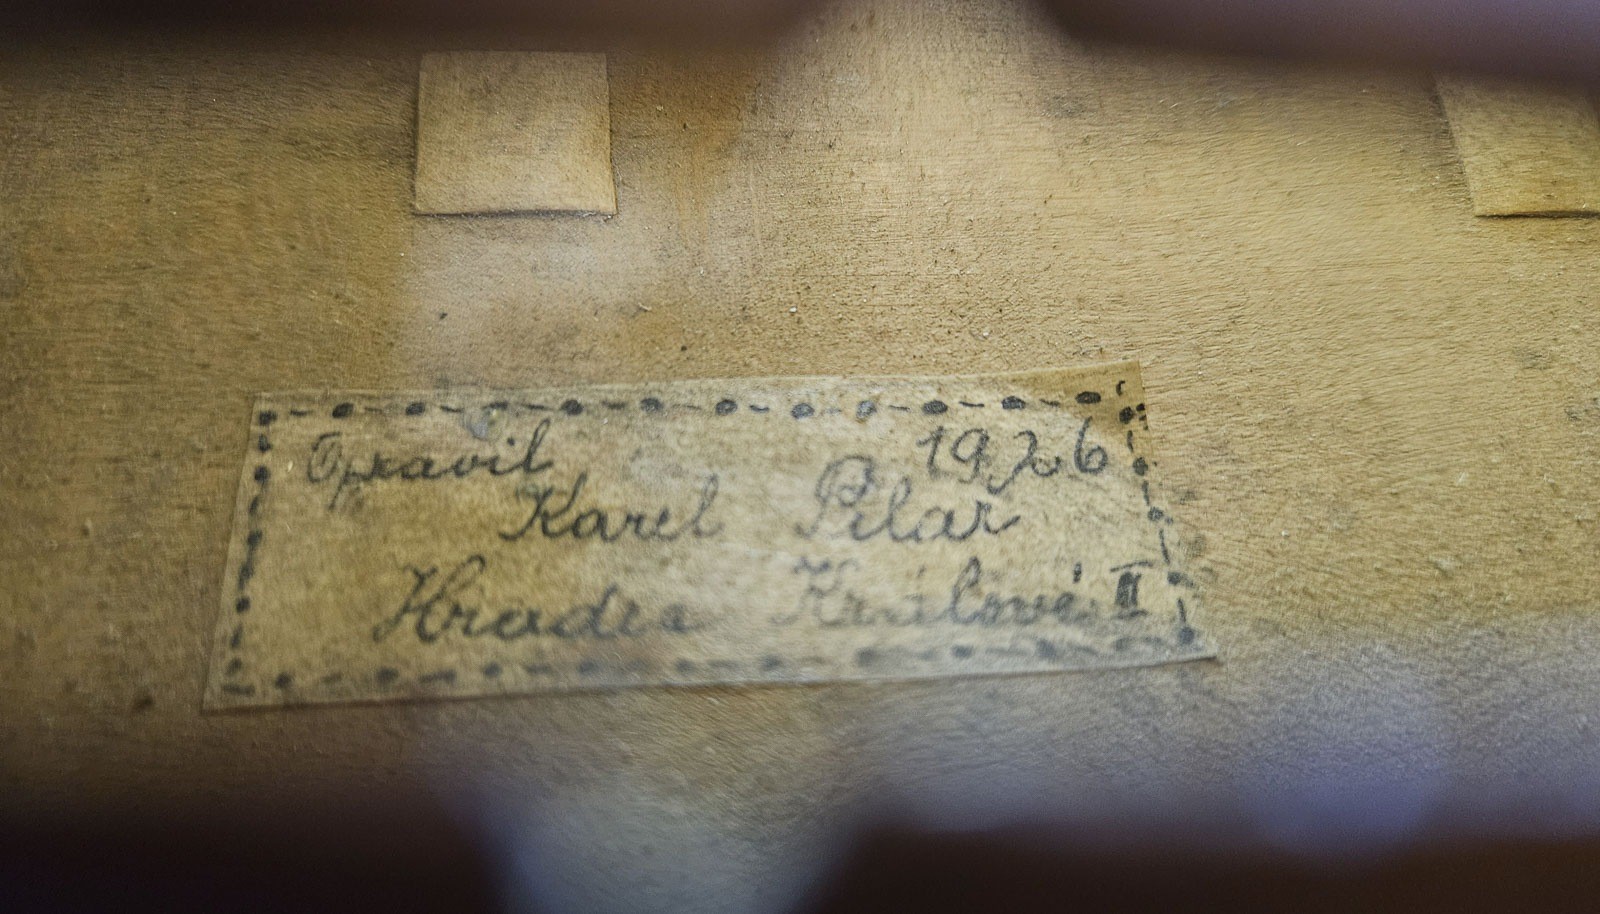 Opravil 1926
Karel Pilar
Hradec Králové II